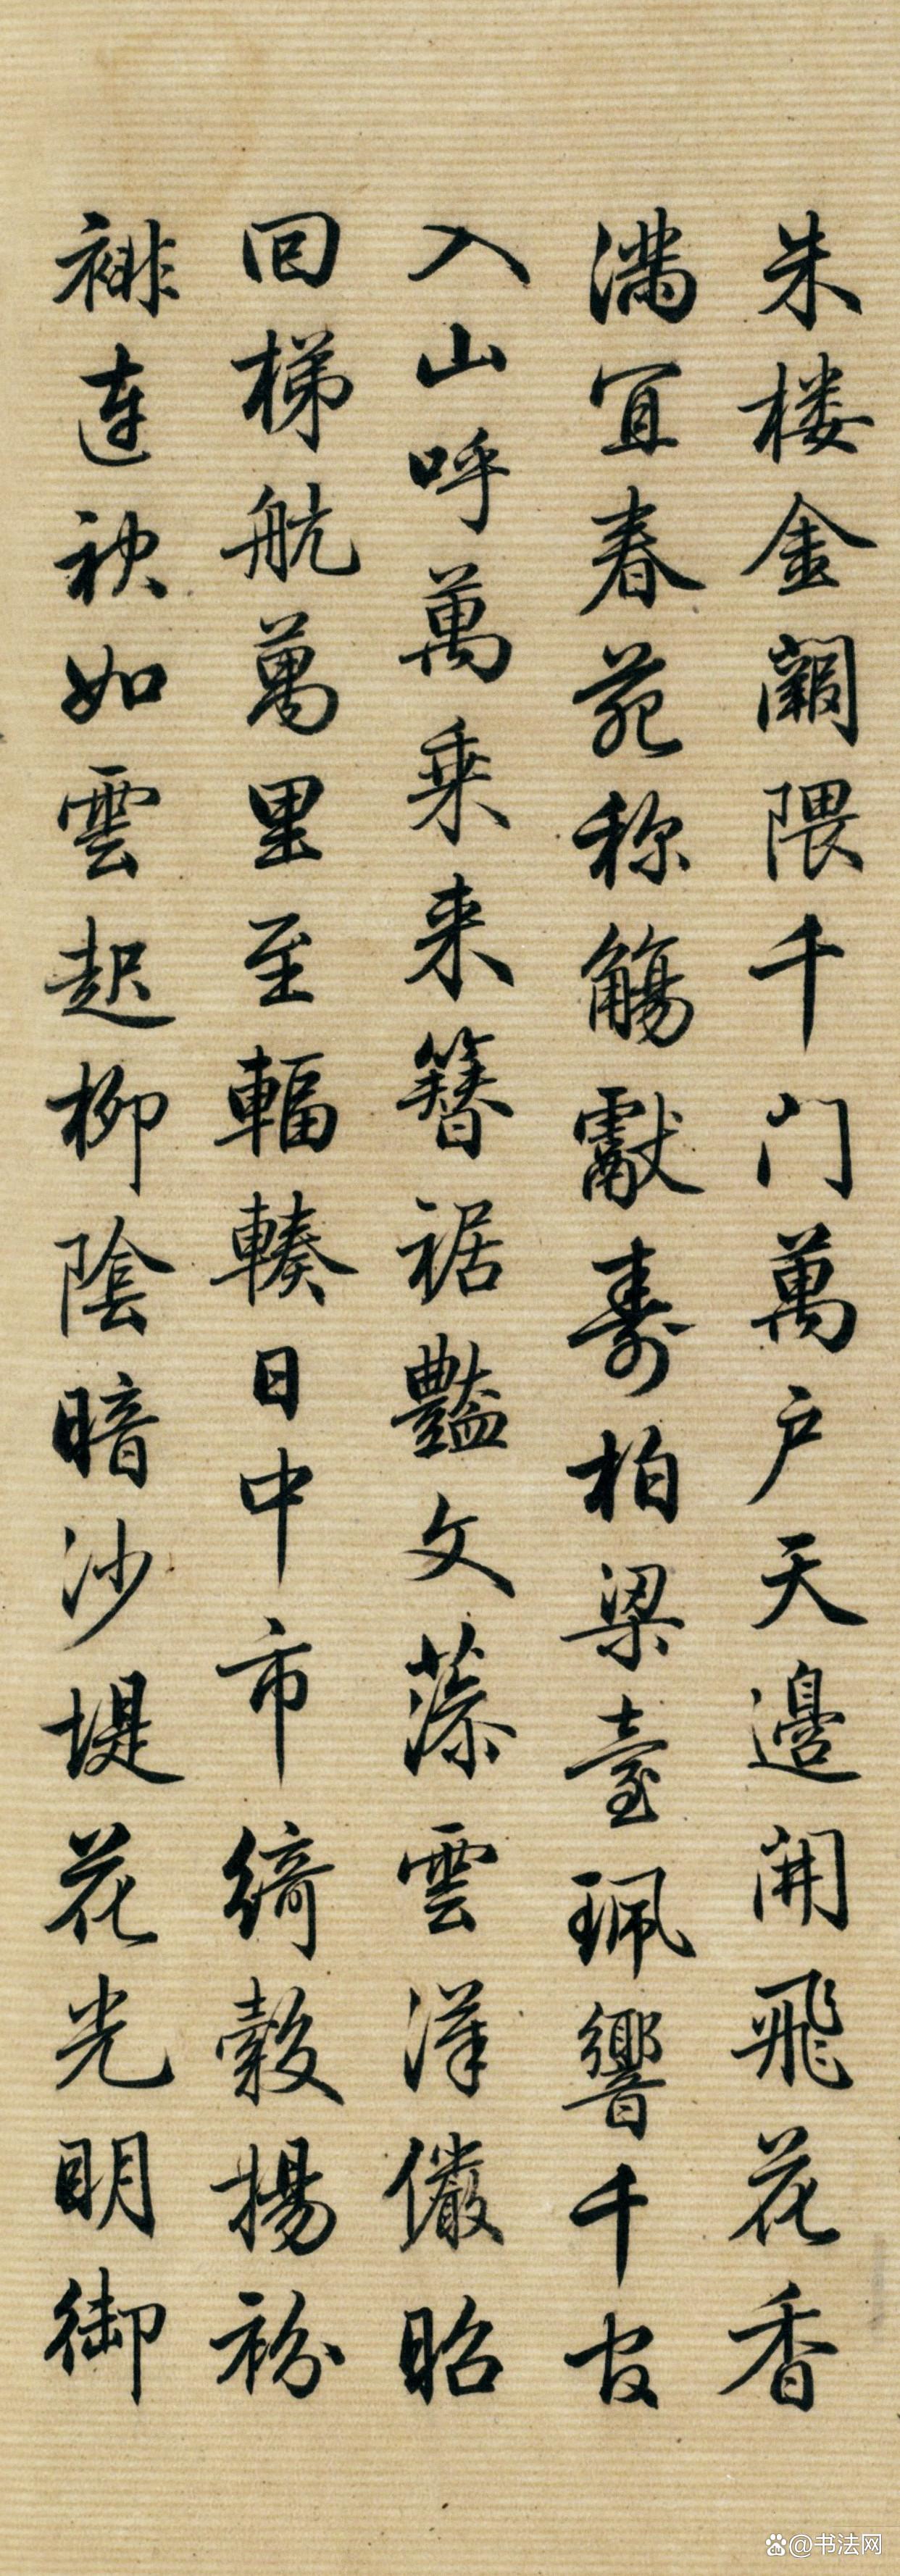 朱楼金闕隈千門萬户天邊開飛花香
滿宜春苑称觴獻壽柏梁臺珮響千官
入山呼萬乗来簪裾豔文藻雲漢儼昭
回梯航萬里至輻輳日中市綺縠揚衯
裶連袂如雲起柳陰暗沙堤花光明御
@书法网